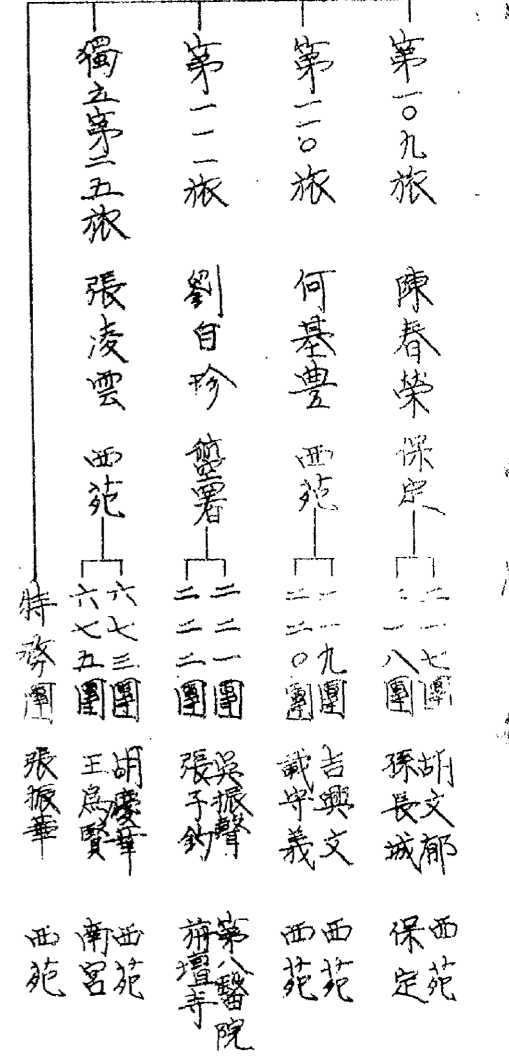 第一〇九旅 陳春榮 保定
二一七團 胡文郁 西苑
二一八團 孫長城 保定
第一一〇旅 何基豐 西苑
二一九團 吉興文 西苑
二二〇團 戴守義 西苑
第一一一旅 劉自珍
二二一團 吳振聲 第八醫院
二二二團 張子鈞 旃壇寺
獨立第二五旅 張凌雲 西苑
六七三團 胡慶華 西苑
六七五團 王為賢 南宮
特務團 張振華 西苑